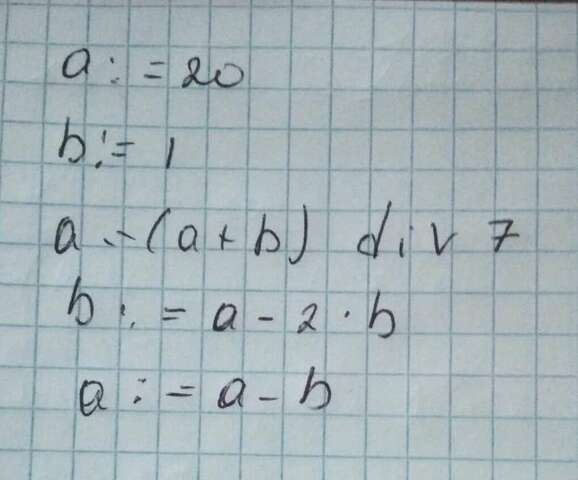 a := 20
b := 1
a :- (a + b) div 7
b := a - 2 · b
a := a - b